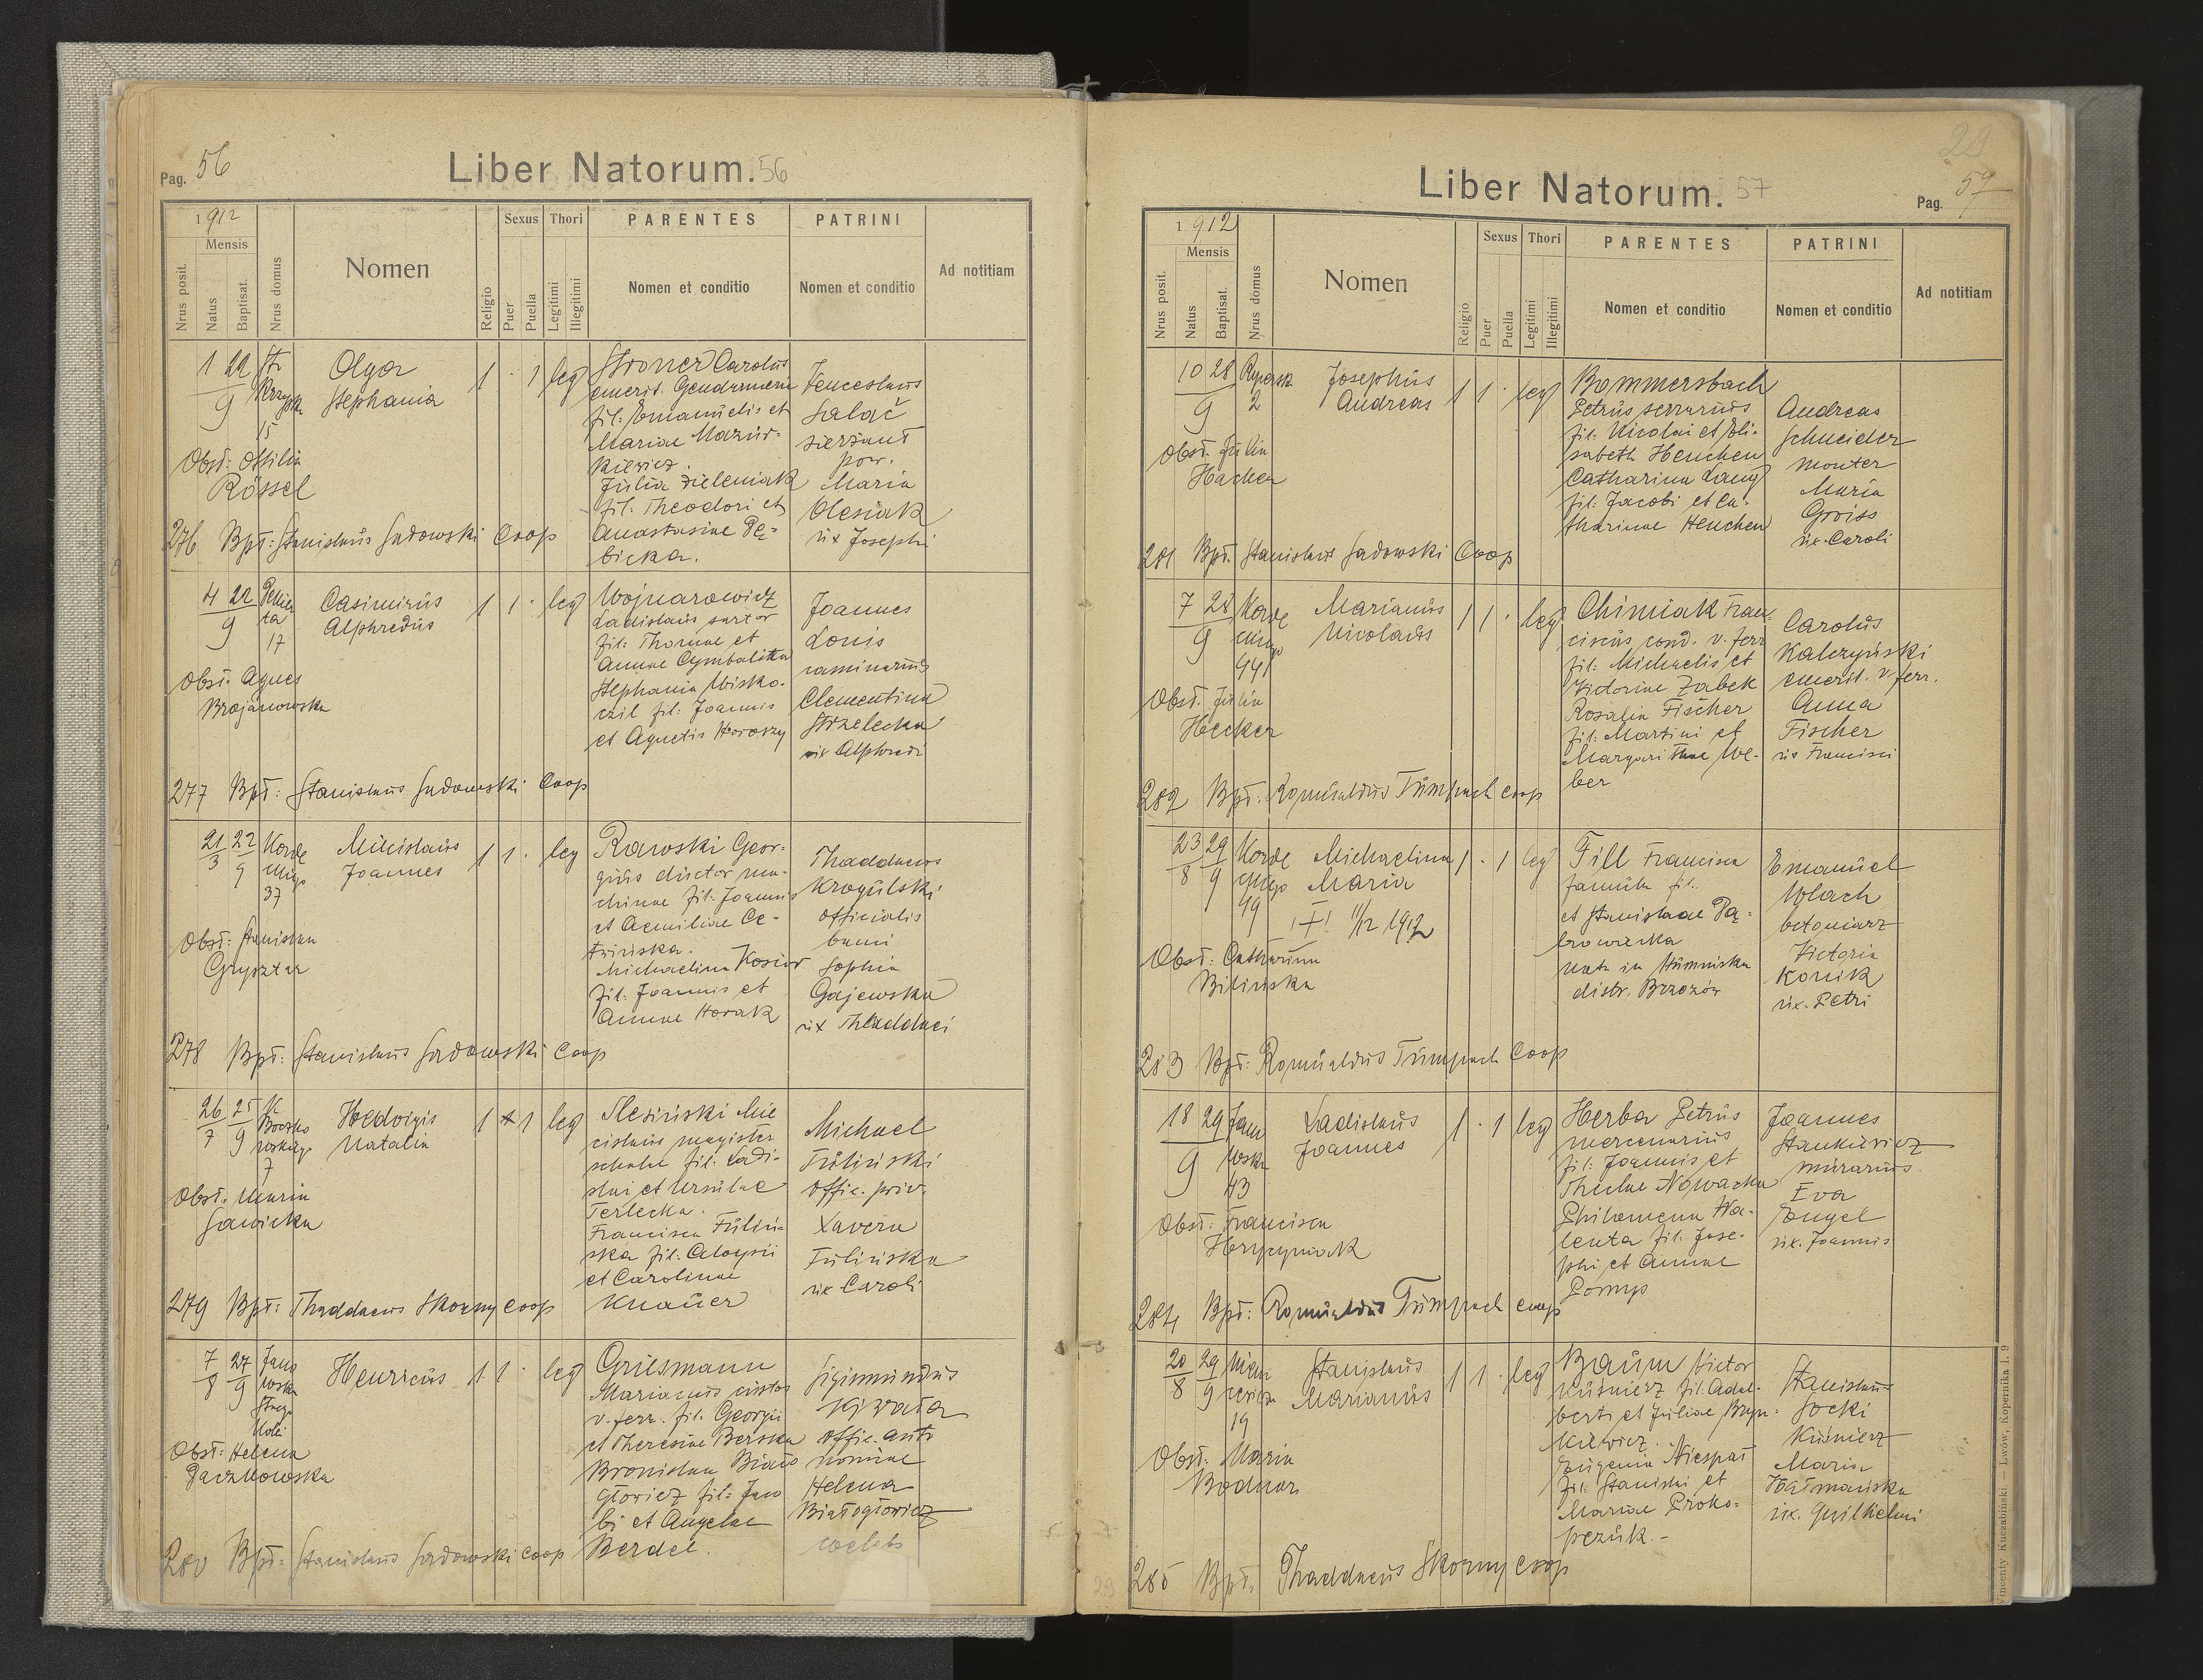 Pag. 56
Liber Natorum. 56
1912
Mensis
Nrus posit.
Natus
Baptisat.
Nrus domus
Nomen
Religio
Sexus
Puer
Puella
Thori
Legitimi
Illegitimi
PARENTES
Nomen et conditio
PATRINI
Nomen et conditio
Ad notitiam
1 22
9
15
Olga
Stephania
1 · 1 leg
Stroner Carolus
emerit. Gendarmeriae
fil: Emanuelis et
Mariae Mazur-
kiewicz.
Julia Zieleniak
fil: Theodori et
Anastasiae
bicka.
Venceslaus
Salač
sierżant
pow.
Maria
Olesiak
ux Josephi
Obst: Ottilia
Rössel
276 Bpt: Stanislaus Sadowski Coop
4 22
9
17
Casimirus
Alphredus
1 1 · leg
Wojnarowicz
Ladislaus sartor
fil: Thomae et
Annae Cymbalista
Stephania
fil: Joannis
et Agnetis
Joannes
Louis
Clementina
Strzelecka
ux Alphredi
Obst: Agnes
Brojanowska
277 Bpt: Stanislaus Sadowski Coop
21 22
3 9
37
Joannes
1 1 · leg
Rawski Geor-
gius ductor ma-
chinae fil: Joannis
et Aemiliae
Michaelina Kosior
fil: Joannis et
Annae Horak
Thaddaeus
Krogulski
officialis
Sophia
Gajewska
ux Thaddaei
Obst: Stanislaa
Grysztar
278 Bpt: Stanislaus Sadowski Coop
26 25
7 9
7
Hedvigis
Natalia
1 · 1 leg
Slesiński Mie
cislaus magister
scholae fil: Ladi-
slai et Ursulae
Terlecka.
Francisca Tuliń-
ska fil: Aloysii
et Carolinae
Knauer
Michael
Tuliński
offic. priv.
Xavera
Tulińska
ux Caroli
Obst: Maria
Sawicka
279 Bpt: Thaddaeus Skorny Coop
7 27
8 9
Jano
wska
Henricus
1 1 · leg
Griesmann
Marianus custos
v. ferr. fil. Georgii
et Theresiae Berska
Bronislaa Biało
głowicz fil: Jaco
bi et Angelae
Berdel.
Sigismundus
offic. auto
nomiae
Helena
Białogłowicz
coelebs
Obst: Helena
Paczkowska
280 Bpt: Stanislaus Sadowski Coop
29
Liber Natorum. 57
Pag. 57
1912
Mensis
Nrus posit.
Natus
Baptisat.
Nrus domus
Nomen
Religio
Sexus
Puer
Puella
Thori
Legitimi
Illegitimi
PARENTES
Nomen et conditio
PATRINI
Nomen et conditio
Ad notitiam
10 28
9
2
Josephus
Andreas
1 1 · leg
Bommersbach
Petrus serrarius
fil: Nicolai et Eli-
sabeth Henchen
Catharina Lang
fil: Jacobi et Ca-
tharinae Henchen
Andreas
Schneider
monter
Maria
Groiss
ux. Caroli
Obst. Julia
281 Bpt. Stanislaus Sadowski Coop
7 28
9
Korde
ckiego
Marianus
Nicolaus
1 1 · leg
Chimiak Fran-
ciscus cond. v. ferr
fil: Michaelis et
Victoriae Ząbek
Rosalia Fischer
fil: Martini et
Margarithae We-
ber
Carolus
Kalczyński
emerit. v. ferr.
Anna
Fischer
ux Francisci
Obst. Julia
Hecker
282 Bpt: Romualdus Tumpach coop
23 29
8 9
Korde
ckiego
19
Michaelina
Maria
1 · 1 leg
† 11/12 1912
Fill Francisca
famula fil:
et Stanislaae
nata in Humniska
distr. Brzozów
Emanuel
Wlach
betoniarz
Victoria
Konik
ux. Petri
Obst: Catharina
Bilińska
283 Bpt: Romualdus Tumpach Coop
18 29
9
Jano
wska
43
Ladislaus
Joannes
1 · 1 leg
Herba Petrus
mercenarius
fil: Joannis et
Theclae Nowacka
Philomena Wa-
lenta fil: Jose-
phi et Annae
Joannes
Stankiewicz
murarius
Eva
Engel
ux. Joannis
Obst: Francisca
284 Bpt: Romualdus Tumpach coop
20 29
8 9
19
Stanislaus
Marianus
1 1 · leg
Baum Victor
kuśnierz fil. Adal-
berti et Juliae
Eugenia Niespał
fil. Stanislai et
Mariae Proko-
pczuk.-
Stanislaus
Socki
kuśnierz
Maria
ux. Guilhelmi
Obst: Maria
Bodnar
285 Bpt. Thaddaeus Skorny Coop
29
Wincenty Kuczabiński. — Lwów, Kopernika l. 9